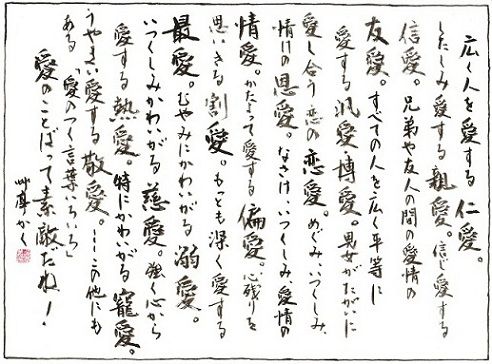 広く人を愛する仁愛。
したしみ愛する親愛。信じ愛する
信愛。兄弟や友人の間の愛情の
友愛。すべての人を広く平等に
愛する汎愛博愛。男女がたがいに
愛し合う恋の恋愛。めぐみ、いつくしみ、
情けの恩愛。なさけ、いつくしみ愛情の
情愛。かたよって愛する偏愛。心残りを
思いきる割愛。もっとも深く愛する
最愛。むやみにかわいがる溺愛。
いつくしみかわいがる慈愛。強く心から
愛する熱愛。特にかわいがる寵愛。
うやまい愛する敬愛。…この他にも
ある「愛のつく言葉いろいろ」
愛のことばって素敵だね！
かく